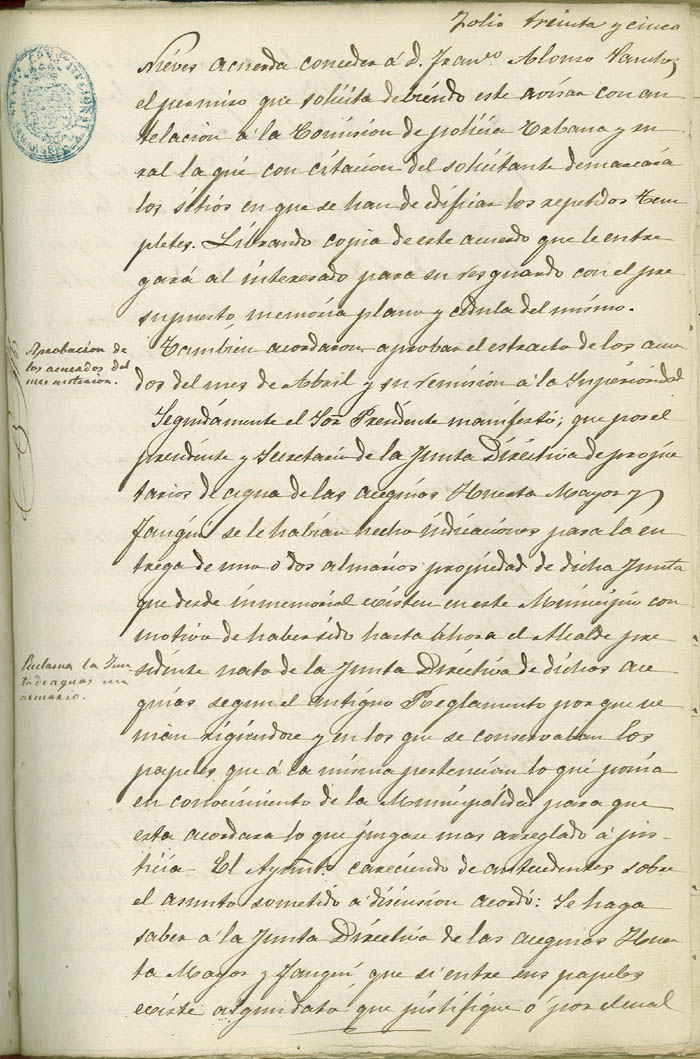 Folio treinta y cinco
Nieves acuerda conceder á d. Franco Alonso Sanchez
el permiso que solicita debiendo este avisar con an
telacion á la Comision de policia Urbana y ru
ral la que con citacion del solicitante demarcará
los sitios en que se han de edificar los repetidos tem
pletes. Librando copia de este acuerdo que le entre
gará al interesado para su resguardo con el pre
supuesto, memoria plano y cédula del mismo.
Aprobacion de
los acuerdos del
mes anterior.
Tambien acordaron aprobar el estracto de los acuer
dos del mes de Abril y su remision á la Superioridad
Segundamente el Sor Presidente manifestó; que por el
presidente y Secretario de la Junta Directiva de propie
tarios de agua de las acequias Huerta Mayor y
Jauqui se le habian hecho indicaciones para la en
trega de uno o dos almarios propiedad de dicha Junta
que desde inmemorial existen en este Municipio con
motivo de haber sido hasta ahora el Alcalde pre
Reclama la Jun
ta de aguas un
armario.
sidente nato de la Junta Directiva de dichas ace
quias segun el antiguo Reglamento por que ve
nian rigiendose y en los que se conservaban los
papeles que á la misma pertenecian lo que ponia
en conocimiento de la Municipalidad para que
esta acordara lo que juzgase mas arreglado á jus-
ticia. El Ayunto careciendo de antecedentes sobre
el asunto sometido a discusion acordó: Se haga
saber á la Junta Directiva de las acequias Huer
ta Mayor y Jauqui, que si entre sus papeles
existe algun dato que justifique ó por el cual